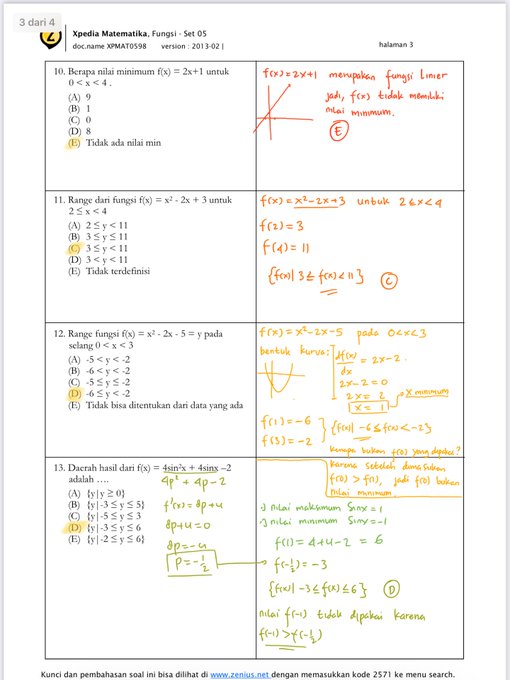 3 dari 4
Xpedia Matematika, Fungsi - Set 05
doc.name XPMAT0598 version : 2013-02 |
halaman 3
10. Berapa nilai minimum f(x) = 2x+1 untuk
0 < x < 4 .
(A) 9
(B) 1
(C) 0
(D) 8
(E) Tidak ada nilai min
f(x) = 2x+1 merupakan fungsi Linier
jadi, f(x) tidak memiliki
nilai minimum.
E
11. Range dari fungsi f(x) = x² - 2x + 3 untuk
2 ≤ x < 4
(A) 2 ≤ y < 11
(B) 3 ≤ y ≤ 11
(C) 3 ≤ y < 11
(D) 3 < y < 11
(E) Tidak terdefinisi
f(x) = x²-2x+3 untuk 2≤x<4
f(2) = 3
f(4) = 11
{f(x)| 3 ≤ f(x) < 11}
C
12. Range fungsi f(x) = x² - 2x - 5 = y pada
selang 0 < x < 3
(A) -5 < y < -2
(B) -6 < y < -2
(C) -5 ≤ y ≤ -2
(D) -6 ≤ y < -2
(E) Tidak bisa ditentukan dari data yang ada
f(x) = x²-2x-5 pada 0<x<3
bentuk kurva:
df(x)/dx = 2x-2.
2x-2 = 0
2x = 2
x = 1
x minimum
f(1) = -6
f(3) = -2
{f(x)| -6 ≤ f(x) < -2}
kenapa bukan f(0) yang dipakai?
karena setelah dimasukan
f(0) > f(1), jadi f(0) bukan
nilai minimum.
13. Daerah hasil dari f(x) = 4sin²x + 4sinx –2
adalah ….
(A) {y|y ≥ 0}
(B) {y|-3 ≤ y ≤ 5}
(C) {y|-5 ≤ y ≤ 3}
(D) {y|-3 ≤ y ≤ 6}
(E) {y|-2 ≤ y ≤ 6}
4p² + 4p - 2
f'(x) = 8p+4
8p+4 = 0
8p = -4
p = -1/2
nilai maksimum sinx = 1
nilai minimum sinx = -1
f(1) = 4+4-2 = 6
f(-1/2) = -3
{f(x)| -3 ≤ f(x) ≤ 6}
D
nilai f(-1) tidak dipakai karena
f(-1) > f(-1/2)
Kunci dan pembahasan soal ini bisa dilihat di www.zenius.net dengan memasukkan kode 2571 ke menu search.